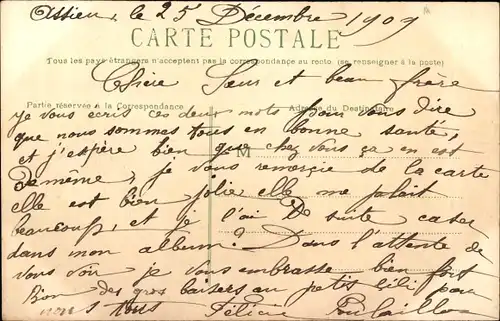 Assier, le 25 Décembre 1909
CARTE POSTALE
Tous les pays étrangers n'acceptent pas la correspondance au recto (se renseigner à la poste)
Chère Sœur et beau frère
Partie réservée à la Correspondance
Adresse du Destinataire
je vous écris ces deux mots pour vous dire
que nous sommes tous en bonne santé,
et j'espère bien que chez vous ça en est
M
de même, je vous remercie de la carte
elle est bien jolie elle me plaît
beaucoup, et je l'ai De suite caser
dans mon album? Dans l'attente de
vous voir je vous embrasse bien fort
Bon des gros baisers au petit Lili pour
nous tous Félicie